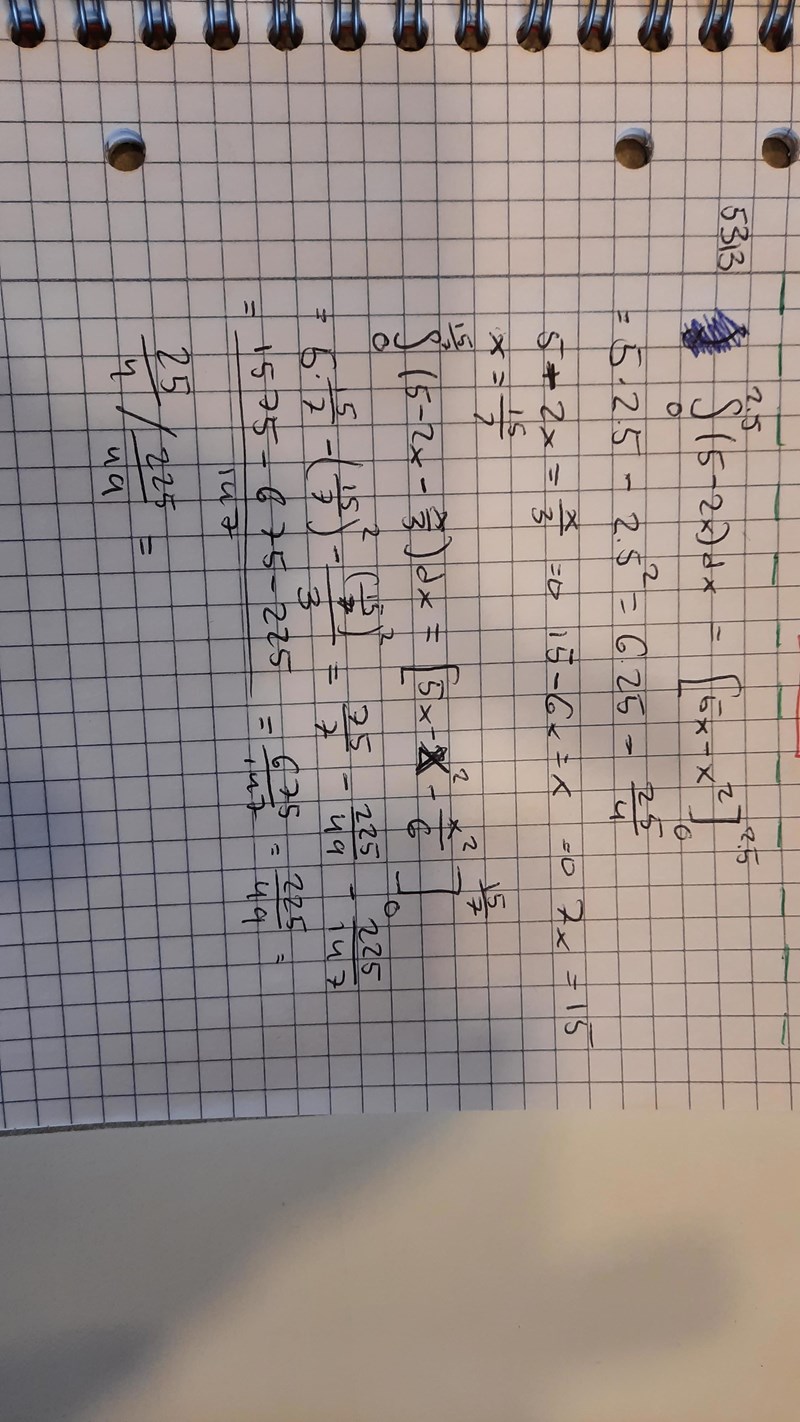 5313 ∫₀^2.5 (5-2x)dx = [5x-x²]₀^2.5
= 5·2.5 - 2.5² = 6.25 = 25/4
5-2x = x/3 => 15-6x = x => 7x = 15
x = 15/7
∫₀^15/7 (5-2x-x/3)dx = [5x-x²-x²/6]₀^15/7
= 5·15/7 - (15/7)² - (15/7)²/3 = 75/7 - 225/49 - 225/147
= (1575-675-225)/147 = 675/147 = 225/49 =
25/4 / 225/49 =